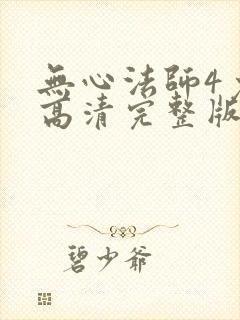 無心法師4
高清完整版
碧少爺